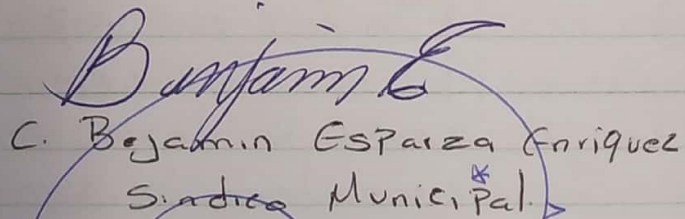 Benjamin E
C. Bejamin Esparza Enriquez
Sindico Municipal.